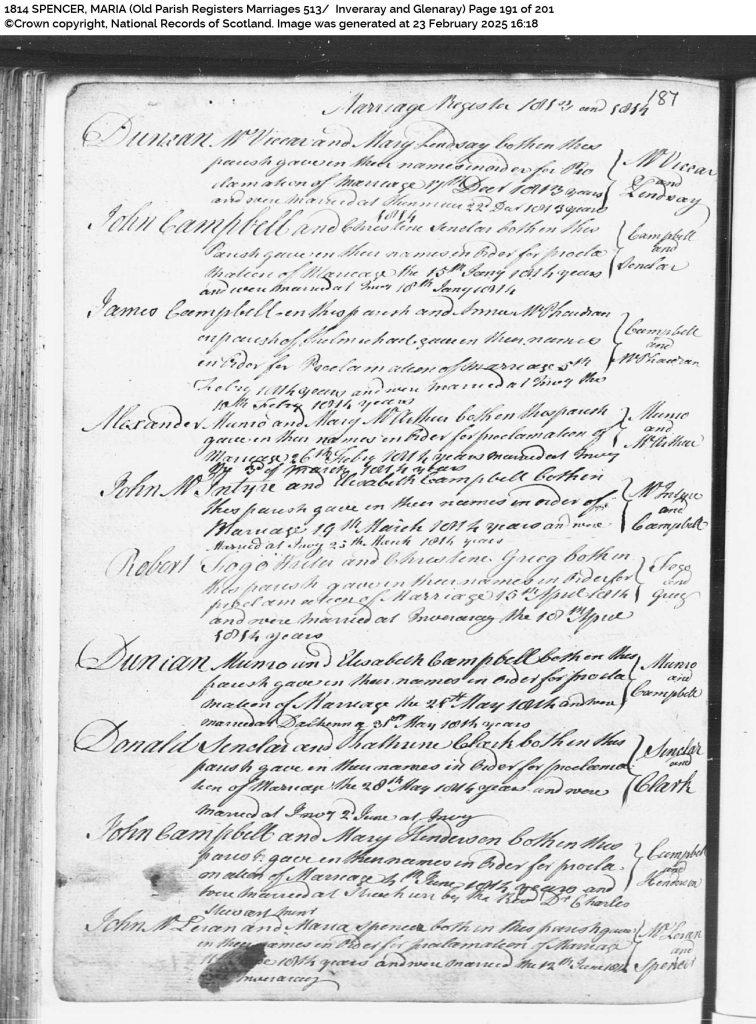 1814 SPENCER, MARIA (Old Parish Registers Marriages 513/ Inveraray and Glenaray) Page 191 of 201
©Crown copyright, National Records of Scotland. Image was generated at 23 February 2025 16:18
187
Marriage Register 1813 and 1814
Duncan McViccar and Mary Lindsay both in this
parish gave in their names in order for Pro
clamation of Marriage 17th Decr 1813 years
and were married at 22d Decr 1813 years
McViccar
and
Lindsay
1814
John Campbell and Christine Senclar both in this
Parish gave in their names in order for procla
mation of Marriage the 15th Jany 1814 years
and were married at Invry 18th Jany 1814
Campbell
and
Senclar
James Campbell in this parish and Anna
in parish of Kilmichael gave in their names
in order for Proclamation of Marriage 5th
Febry 1814 years and were married at Invry the
10th Febry 1814 years
Campbell
and
Alexander Munro and Mary McArthur both in this parish
gave in their names in order for proclamation of
Marriage 26th Febry 1814 years married at Invry
3d of March 1814 years
Munro
and
McArthur
John McIntyre and Elizabeth Campbell both in
this parish gave in their names in order of for
Marriage 19th March 1814 years and were
Married at Invry 25th March 1814 years
McIntyre
and
Campbell
Robert Fogo Writer and Christine Greg both in
this parish gave in their names in order for
proclamation of Marriage 15th April 1814
and were married at Inveraray the 18th April
1814 years
Fogo
and
Greg
Duncan Munro and Elisabeth Campbell both in this
parish gave in their names in order for procla
mation of Marriage the 28th May 1814 and were
married at Dalchenna 31st May 1814 years
Munro
and
Campbell
Donald Senclar and Khathrine Clark both in this
parish gave in their names in order for proclama
tion of Marriage the 28th May 1814 years and were
married at Invry 2 June at Invry
Sinclar
and
Clark
John Campbell and Mary Henderson both in this
parish gave in their names in order for procla
mation of Marriage 4th June 1814 years and
were married at by the Revd Dr Charles
Stewart
Campbell
and
Henderson
John McLeran and Maria Spencer both in this parish gave
in their names in order for proclamation of Marriage
1814 years and were married the 12th June 1814
Inveraray
McLeran
and
Spencer